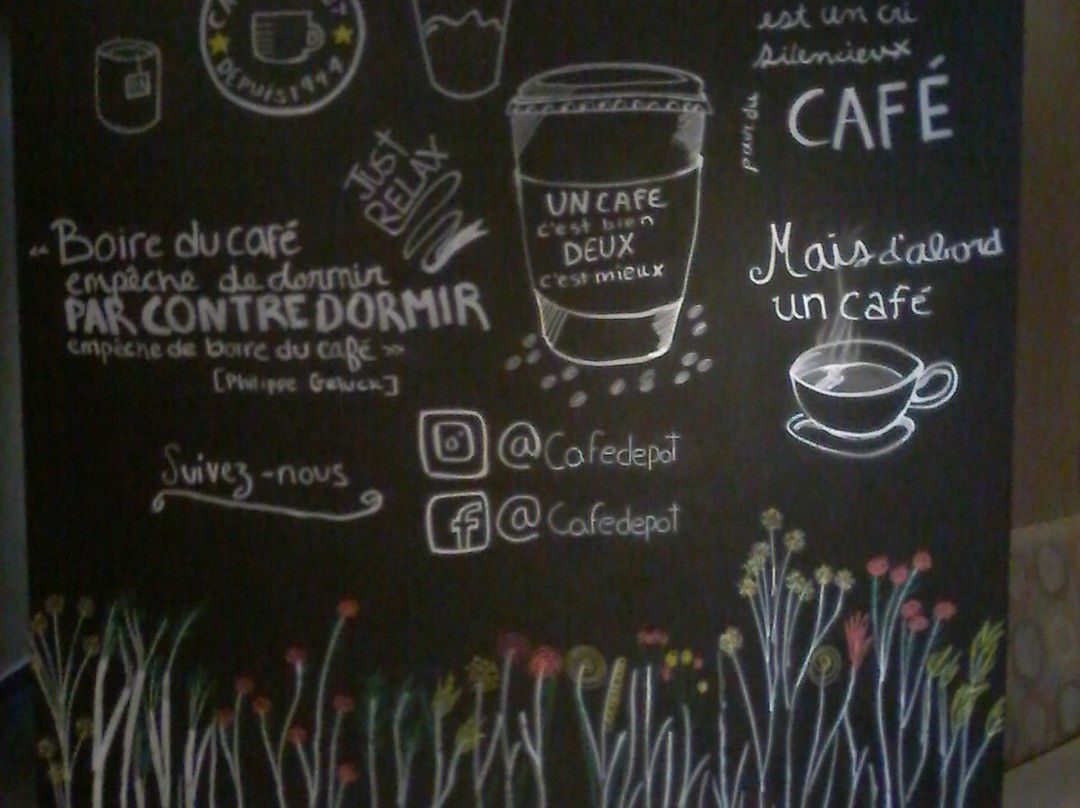 DEPUIS 1994
JUST
RELAX
« Boire du café
empêche de dormir
PAR CONTRE DORMIR
empêche de boire du café »
[Philippe Geluck]
UN CAFE
c'est bien
DEUX
c'est mieux
est un cri
silencieux
CAFÉ
Mais d'abord
un café
Suivez-nous
@Cafedepot
@Cafedepot